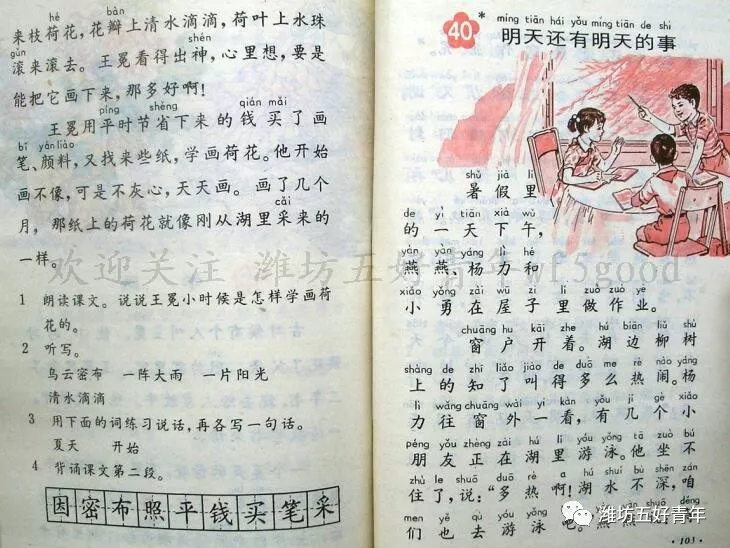 hé bàn
来枝荷花，花瓣上清水滴滴，荷叶上水珠
gǔn shén
滚来滚去。王冕看得出神，心里想，要是
能把它画下来，那多好啊！
píng shěng qián mǎi
王冕用平时节省下来的钱买了画
bǐ yánliào
笔、颜料，又找来些纸，学画荷花。他开始
画不像，可是不灰心，天天画。画了几个
cǎi
月，那纸上的荷花就像刚从湖里采来的
一样。
1 朗读课文。说说王冕小时候是怎样学画荷
花的。
2 听写。
乌云密布 一阵大雨 一片阳光
清水滴滴
3 用下面的词练习说话，再各写一句话。
夏天 开始
4 背诵课文第二段。
因密布照平钱买笔采
míng tiān hái yǒu míng tiān de shì
40* 明天还有明天的事
shǔ jià lǐ
暑假里
de yì tiān xià wǔ
的一天下午，
yàn yàn yáng lì hé
燕燕、杨力和
xiǎo yǒng zài wū zi lǐ zuò zuò yè
小勇在屋子里做作业。
chuāng hu kāi zhe hú biān liǔ shù
窗户开着。湖边柳树
shàng de zhī liǎo jiào de duō me rè nào yáng
上的知了叫得多么热闹。杨
lì wǎng chuāng wài yí kàn yǒu jǐ gè xiǎo
力往窗外一看，有几个小
péng yǒu zhèng zài hú lǐ yóu yǒng tā zuò bú
朋友正在湖里游泳。他坐不
zhù le shuō duō rè a hú shuǐ bù shēn zán
住了，说：“多热啊！湖水不深，咱
men yě qù yóu yǒng ba
们也去游泳吧。
·103·
欢迎关注 潍坊五好青年 wf5good
潍坊五好青年